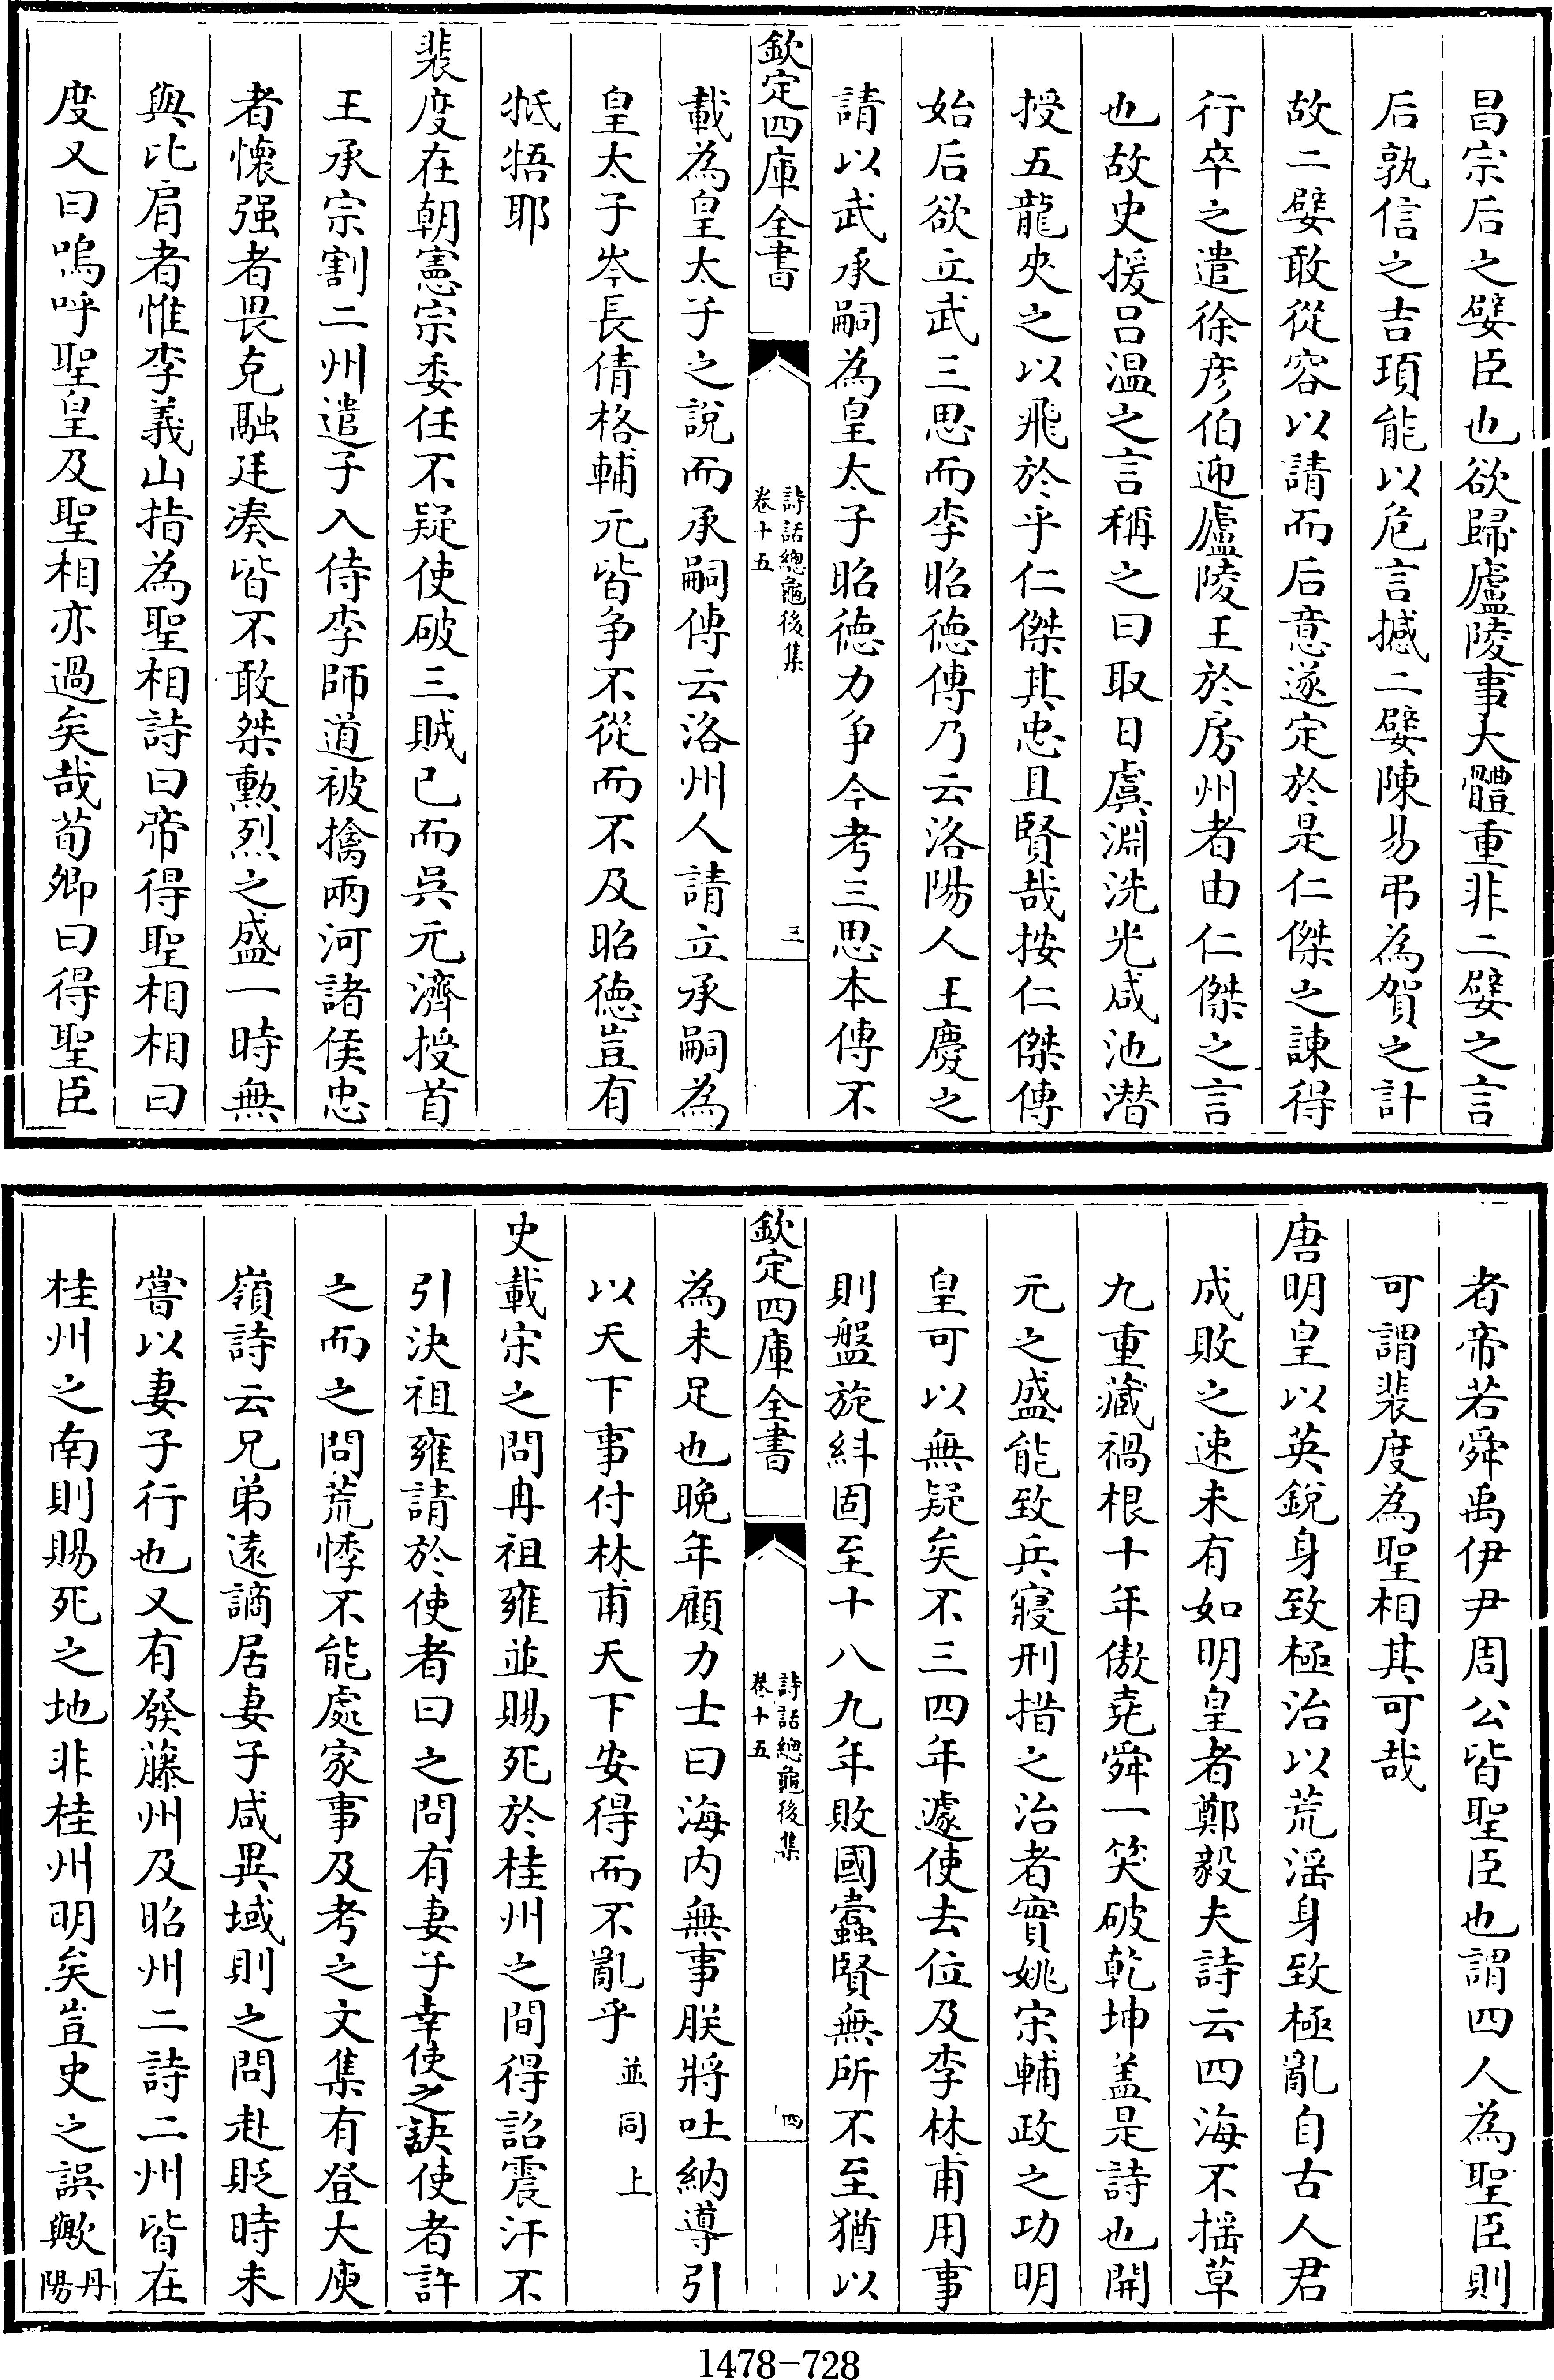 昌宗后之嬖臣也欲歸廬陵事大體重非二嬖之言
后孰信之吉頊能以危言撼二嬖陳易弔為賀之計
故二嬖敢從容以請而后意遂定於是仁傑之諫得
行卒之遣徐彦伯迎廬陵王於房州者由仁傑之言
也故史援吕溫之言稱之曰取日虞淵洗光咸池潜
授五龍夾之以飛於乎仁傑其忠且賢哉按仁傑傳
始后欲立武三思而李昭徳傳乃云洛陽人王慶之
請以武承嗣為皇太子昭徳力争今考三思本傳不
欽定四庫全書
詩話總龜後集
卷十五
三
載為皇太子之說而承嗣傳云洛州人請立承嗣為
皇太子岑長倩格輔元皆争不從而不及昭徳豈有
牴牾耶
裴度在朝憲宗委任不疑使破三賊已而吳元濟授首
王承宗割二州遣子入侍李師道被擒兩河諸侯忠
者懷强者畏克融廷凑皆不敢桀勲烈之盛一時無
與比肩者惟李義山指為聖相詩曰帝得聖相相曰
度又曰嗚呼聖皇及聖相亦過矣哉荀卿曰得聖臣
者帝若舜禹伊尹周公皆聖臣也謂四人為聖臣則
可謂裴度為聖相其可哉
唐明皇以英銳身致極治以荒滛身致極亂自古人君
成敗之速未有如明皇者鄭毅夫詩云四海不揺草
九重藏禍根十年傲堯舜一笑破乾坤盖是詩也開
元之盛能致兵寢刑措之治者實姚宋輔政之功明
皇可以無疑矣不三四年遽使去位及李林甫用事
則盤旋紏固至十八九年敗國蠧賢無所不至猶以
欽定四庫全書
詩話總龜後集
卷十五
四
為未足也晚年顧力士曰海内無事朕將吐納導引
以天下事付林甫天下安得而不亂乎並同上
史載宋之問冉祖雍並賜死於桂州之間得詔震汗不
引決祖雍請於使者曰之問有妻子幸使之訣使者許
之而之問荒悸不能處家事及考之文集有登大庾
嶺詩云兄弟逺謫居妻子咸異域則之問赴貶時未
嘗以妻子行也又有發藤州及昭州二詩二州皆在
桂州之南則賜死之地非桂州明矣豈史之誤歟丹陽
1478-728